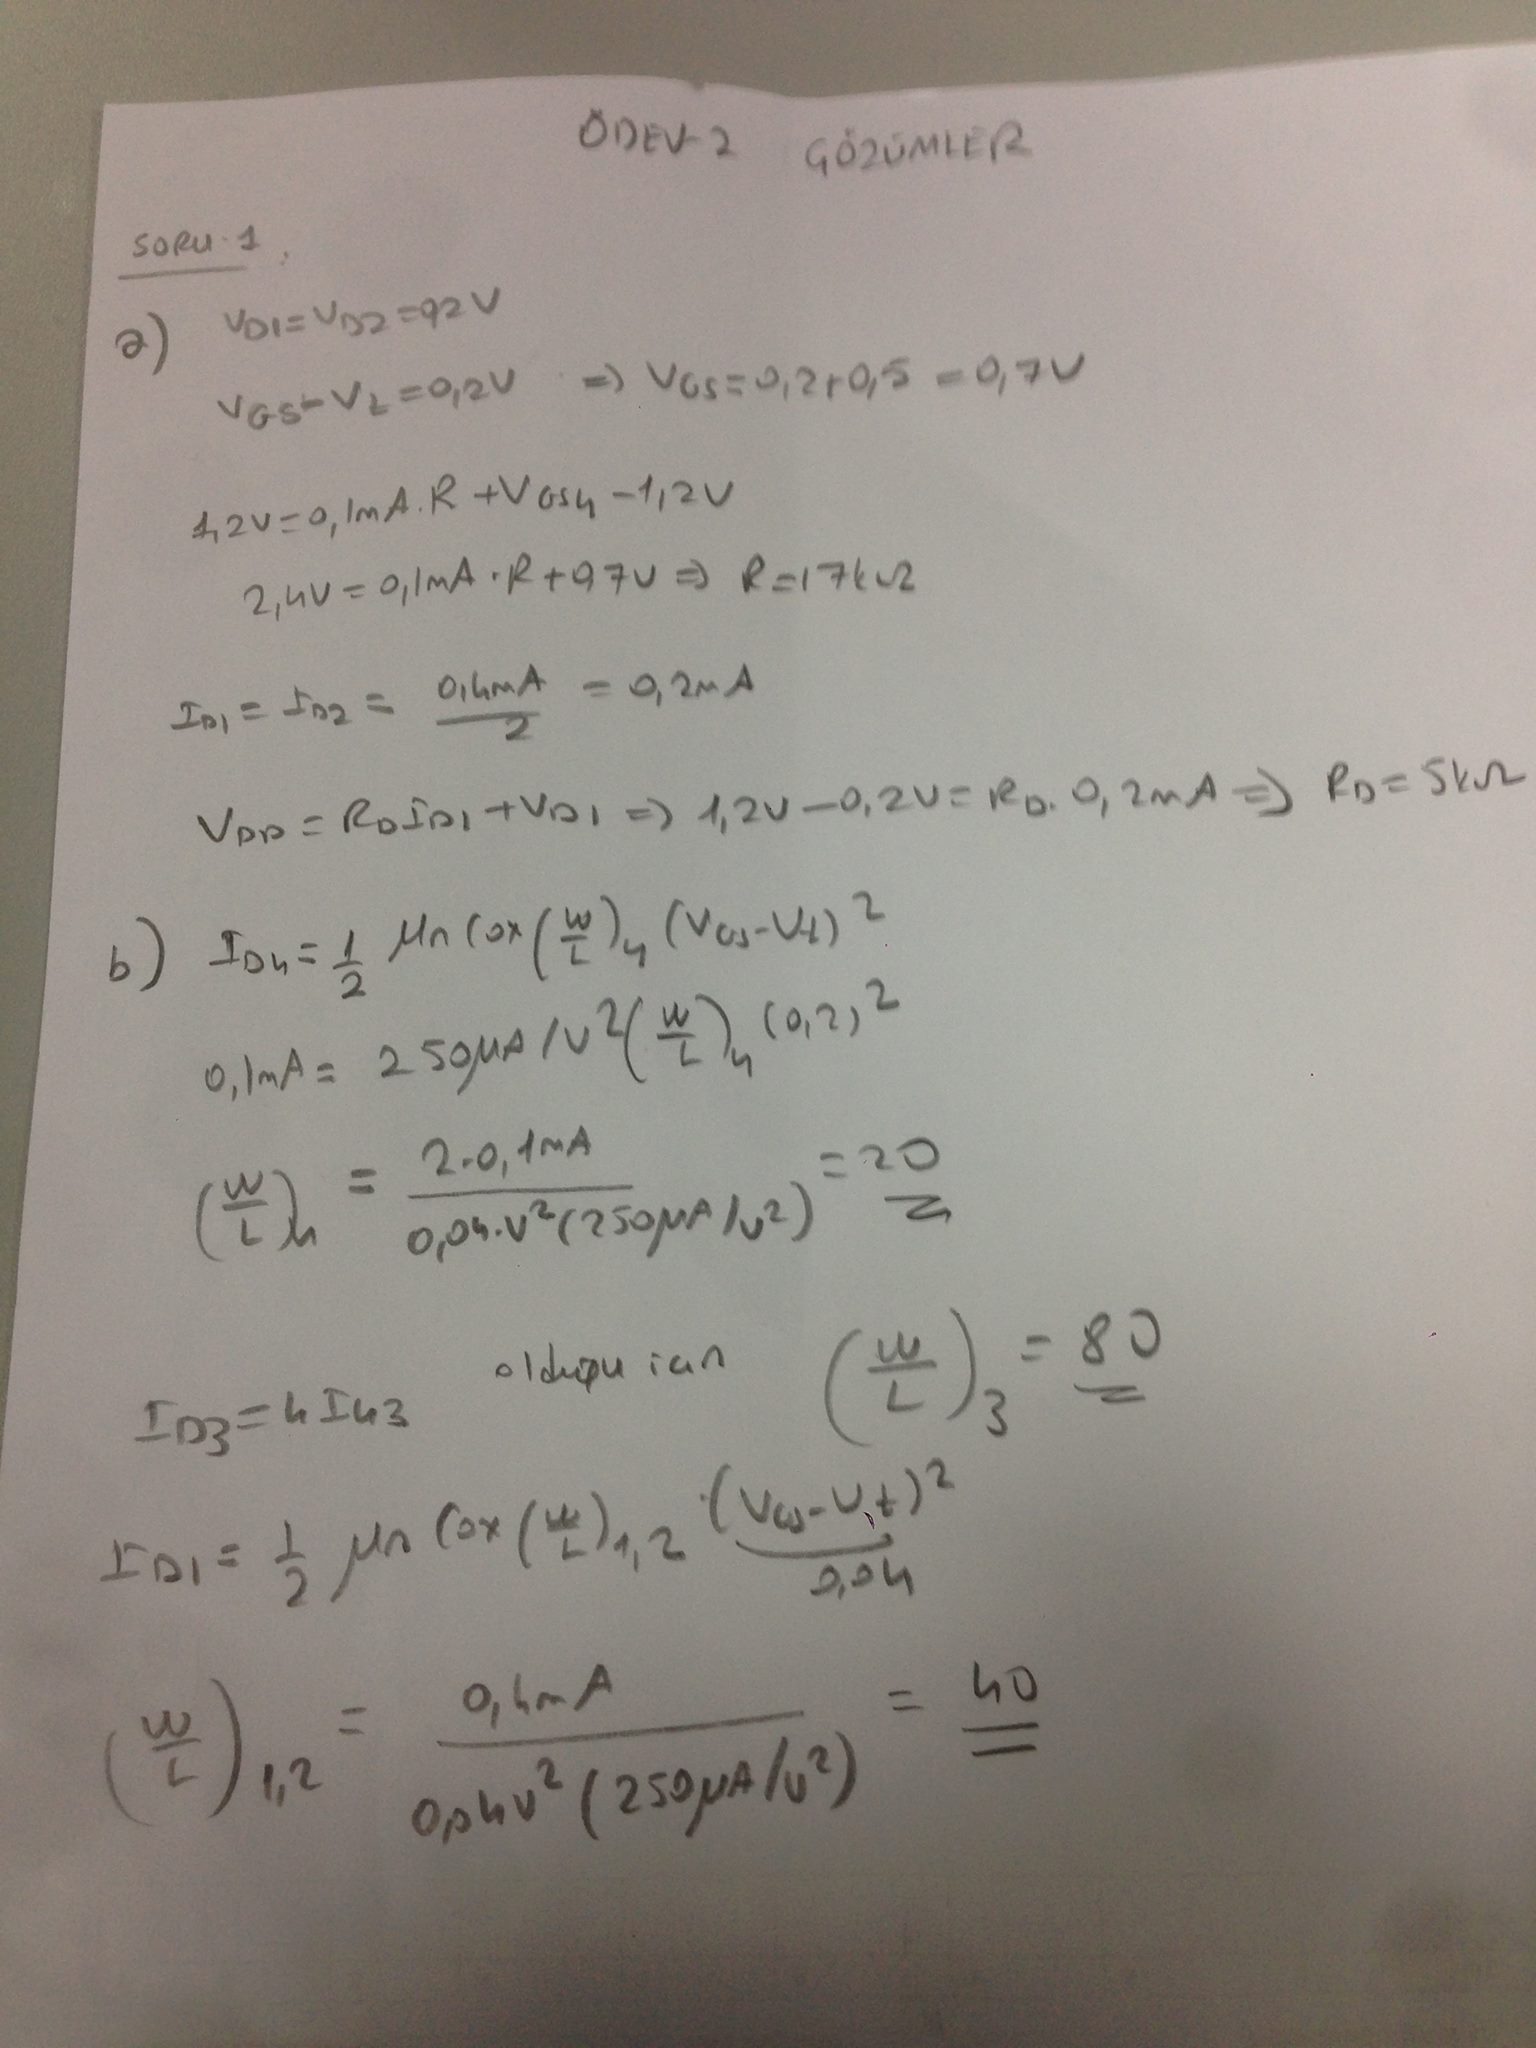 ÖDEV-2 ÇÖZÜMLER
SORU-1.
a) VD1=VD2=0,2V
VGS-Vt=0,2V => VGS=0,2+0,5=0,7V
1,2V=0,1mA.R+VGS4-1,2V
2,4V=0,1mA.R+0,7V => R=17kΩ
ID1=ID2= 0,4mA/2 = 0,2mA
VDD=RDID1+VD1 => 1,2V-0,2V=RD.0,2mA => RD=5kΩ
b) ID4=1/2 μnCox(W/L)4 (VGS-Vt)²
0,1mA= 250μA/V²(W/L)4 (0,2)²
(W/L)4 = 2.0,1mA / 0,04.V²(250μA/V²) =20
ID3=4I43 olduğu için (W/L)3 =80
ID1=1/2 μnCox(W/L)1,2 .(VGS-Vt)²
0,04
(W/L)1,2 = 0,4mA / 0,04V²(250μA/V²) = 40